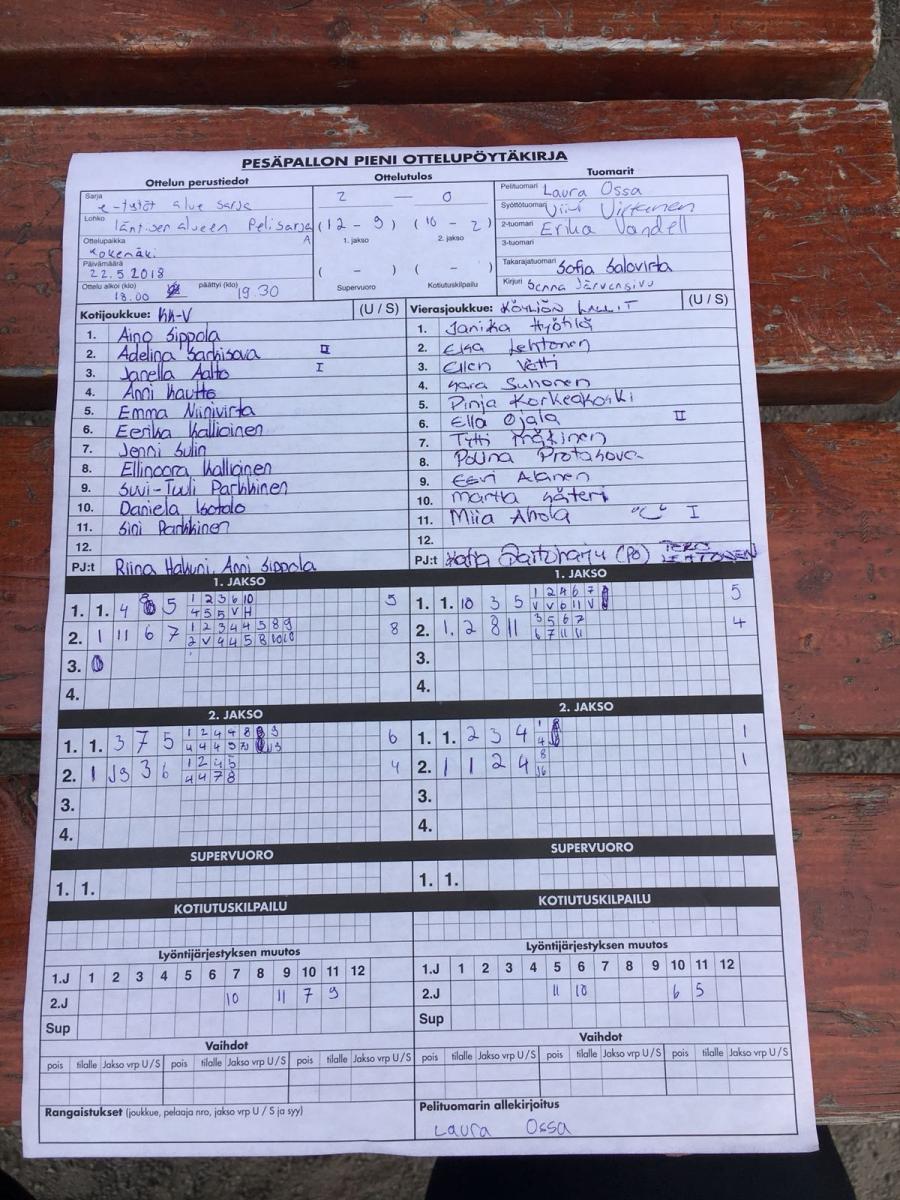 PESÄPALLON PIENI OTTELUPÖYTÄKIRJA
Ottelun perustiedot Ottelutulos Tuomarit
Sarja e-tytöt alue sarja
2 — 0
Pelituomari Laura Ossa
Lohko läntisen alueen Pelisarja A
(12 - 9) (10 - 2)
1. jakso 2. jakso
Syöttötuomari Viivi Virtanen
2-tuomari Erika Vandell
Ottelupaikka Kokemäki
3-tuomari
Päivämäärä 22.5 2018
( - ) ( - )
Supervuoro Kotiutuskilpailu
Takarajatuomari Sofia Salovirta
Ottelu alkoi (klo) 18.00 päättyi (klo) 19.30
Kirjuri Senna Järvensivu
Kotijoukkue: KK-V (U / S)
1. Aino Sippola
2. Adelina Sarkisova II
3. Janella Aalto I
4. Anni Kautto
5. Emma Niinivirta
6. Eerika Kallioinen
7. Jenni Sulin
8. Ellinoora Kallioinen
9. Suvi-Tuuli Parkkinen
10. Daniela Isotalo
11. Sini Parkkinen
12.
PJ:t Riina Hakuni, Anni Sippola
Vierasjoukkue: KÖYLIÖN LALLIT (U / S)
1. Janika Hyöhkä
2. Elsa Lehtonen
3. Ellen Vätti
4. Sara Suhonen
5. Pinja Korkeakoski
6. Ella Ojala II
7. Tytti Mäkinen
8. Polina Protahova
9. Eevi Alanen
10. Martta Säteri
11. Miia Ahola "C" I
12.
PJ:t Katja (PJ) TERO LEHTONEN
1. JAKSO
1. 1. 4 8 5 1 2 3 6 10 5
4 5 5 V H
2. 1 11 6 7 1 2 3 4 4 5 8 9 8
2 V 4 4 5 8 10 10
3.
4.
1. JAKSO
1. 1. 10 3 5 1 2 4 6 7 5
V V 6 11 V
2. 1. 2 8 11 3 5 6 7 4
6 7 11 11
3.
4.
2. JAKSO
1. 1. 3 7 5 1 2 4 4 8 9 6
4 4 4 5
2. 1 J9 3 6 1 2 4 5 4
4 4 7 8
3.
4.
2. JAKSO
1. 1. 2 3 4 1 1
4
2. 1 1 2 4 8 1
J6
3.
4.
SUPERVUORO
1. 1.
SUPERVUORO
1. 1.
KOTIUTUSKILPAILU
KOTIUTUSKILPAILU
Lyöntijärjestyksen muutos
1.J 1 2 3 4 5 6 7 8 9 10 11 12
2.J 10 11 7 9
Sup
Lyöntijärjestyksen muutos
1.J 1 2 3 4 5 6 7 8 9 10 11 12
2.J 11 10 6 5
Sup
Vaihdot
pois tilalle Jakso vrp U / S pois tilalle Jakso vrp U / S pois tilalle Jakso vrp U / S
Vaihdot
pois tilalle Jakso vrp U / S pois tilalle Jakso vrp U / S pois tilalle Jakso vrp U / S
Rangaistukset (joukkue, pelaaja nro, jakso vrp U / S ja syy)
Pelituomarin allekirjoitus
Laura Ossa